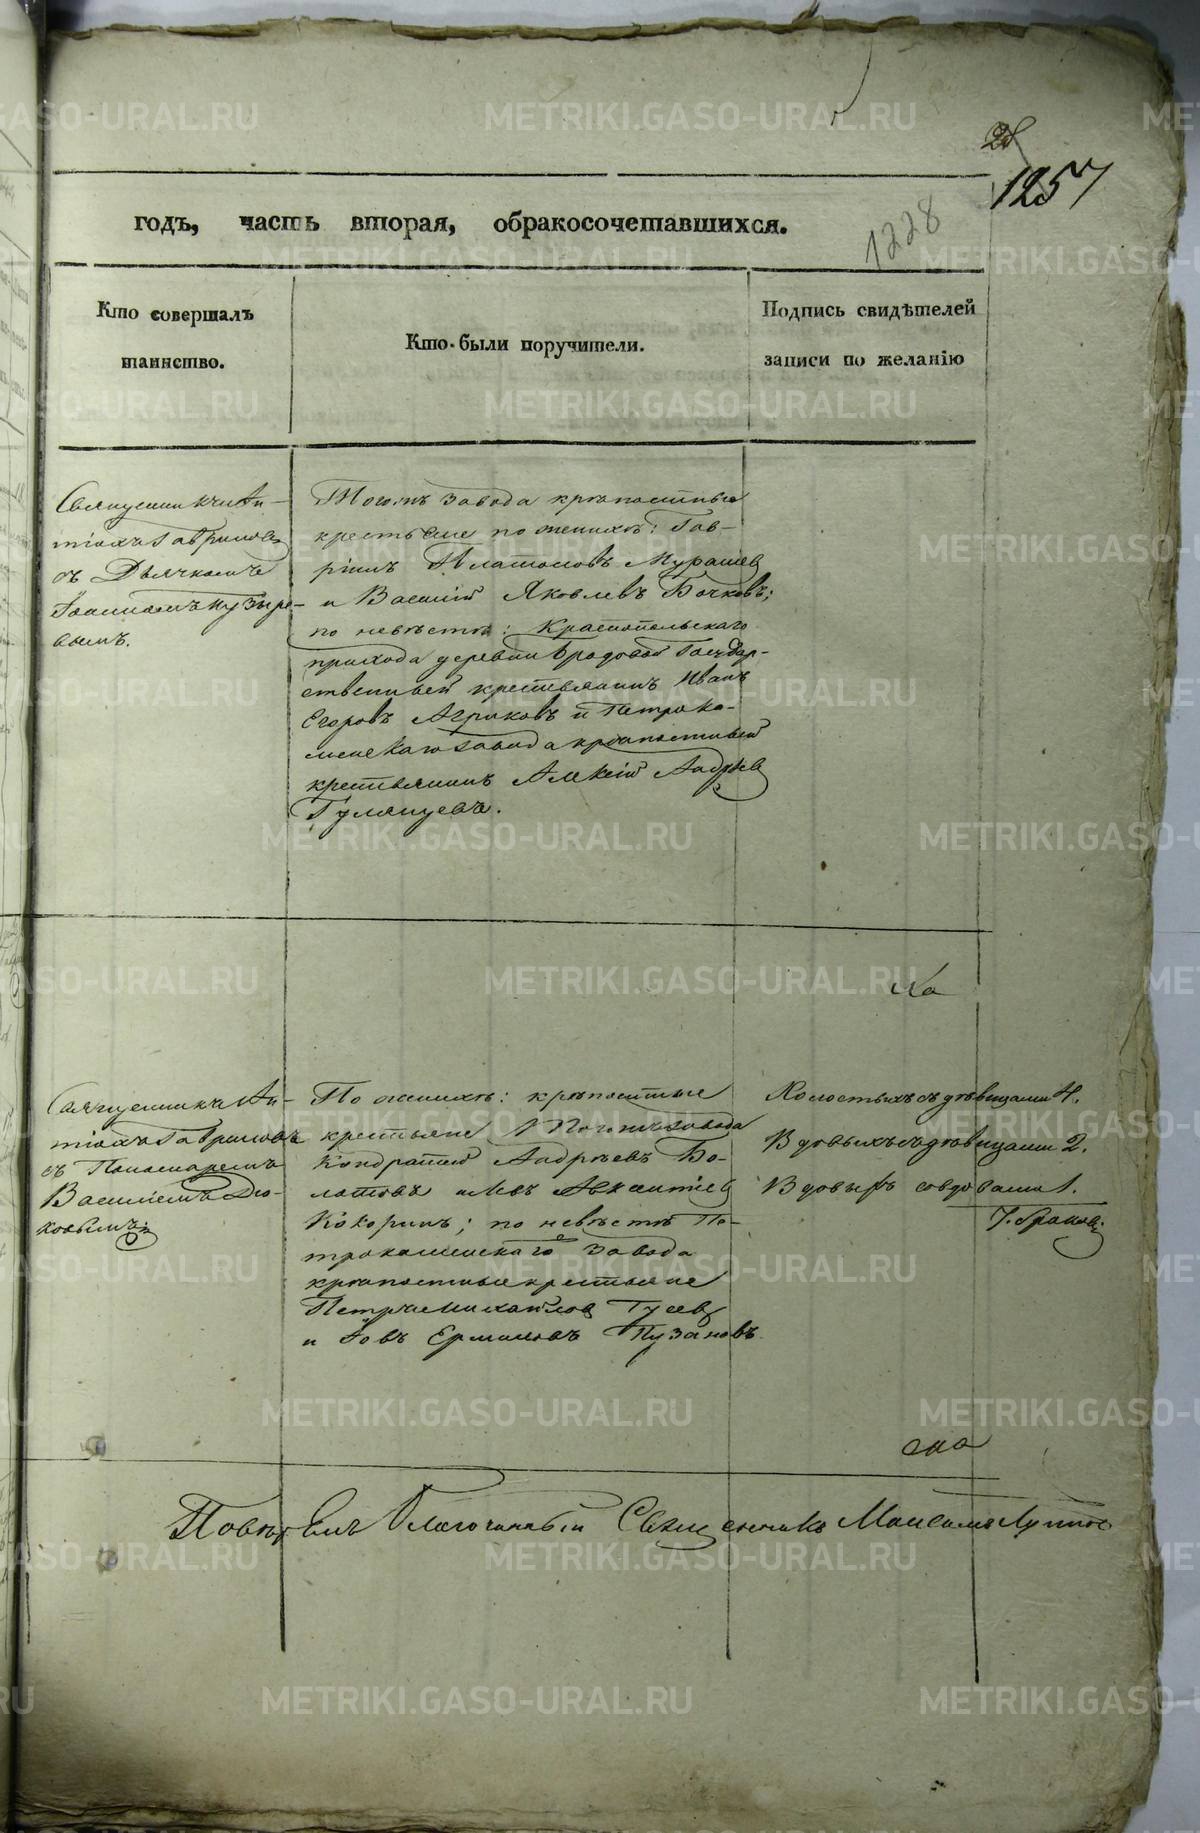 28
1257
1228
годъ, часть вторая, обракосочетавшихся.
Кто совершалъ
таинство.
Кто были поручители.
Подпись свидѣтелей
записи по желанію
Священникъ Ан-
тіохъ Гавриловъ
съ Дьячкомъ
Іоанномъ Пузыре-
вымъ.
Тогожъ завода крѣпостные
крестьяне по женихѣ: Гав-
ріилъ Платоновъ Мурашев
и Василій Яковлевъ Бочковъ;
по невѣстѣ: Краснопольскаго
прихода деревни Бродовой Государ-
ственный крестьянинъ Иванъ
Егоровъ Агриковъ и Петрока-
менскаго завода крѣпостный
крестьянинъ Алексій Андрѣев
Гулянцевъ.
Священникъ Ан-
тіохъ Гавриловъ
съ Пономаремъ
Василіемъ Дю-
ковымъ
По женихѣ: крѣпостные
крестьяне Тогожъ завода
Кондратій Андрѣевъ Бо-
латовъ и Левъ Авксентіев
Кокоринъ; по невѣстѣ Пе-
трокаменскаго завода
крѣпостные крестьяне
Петръ Михайлов Гусев
и Іовъ Ермиловъ Пузановъ
Холостыхъ съ дѣвицами 4.
Вдовыхъ съ дѣвицами 2.
Вдовыхъ со вдовами 1.
7. браков
Повѣрялъ Благочинный Священникъ Максимъ Луппов
METRIKI.GASO-URAL.RU